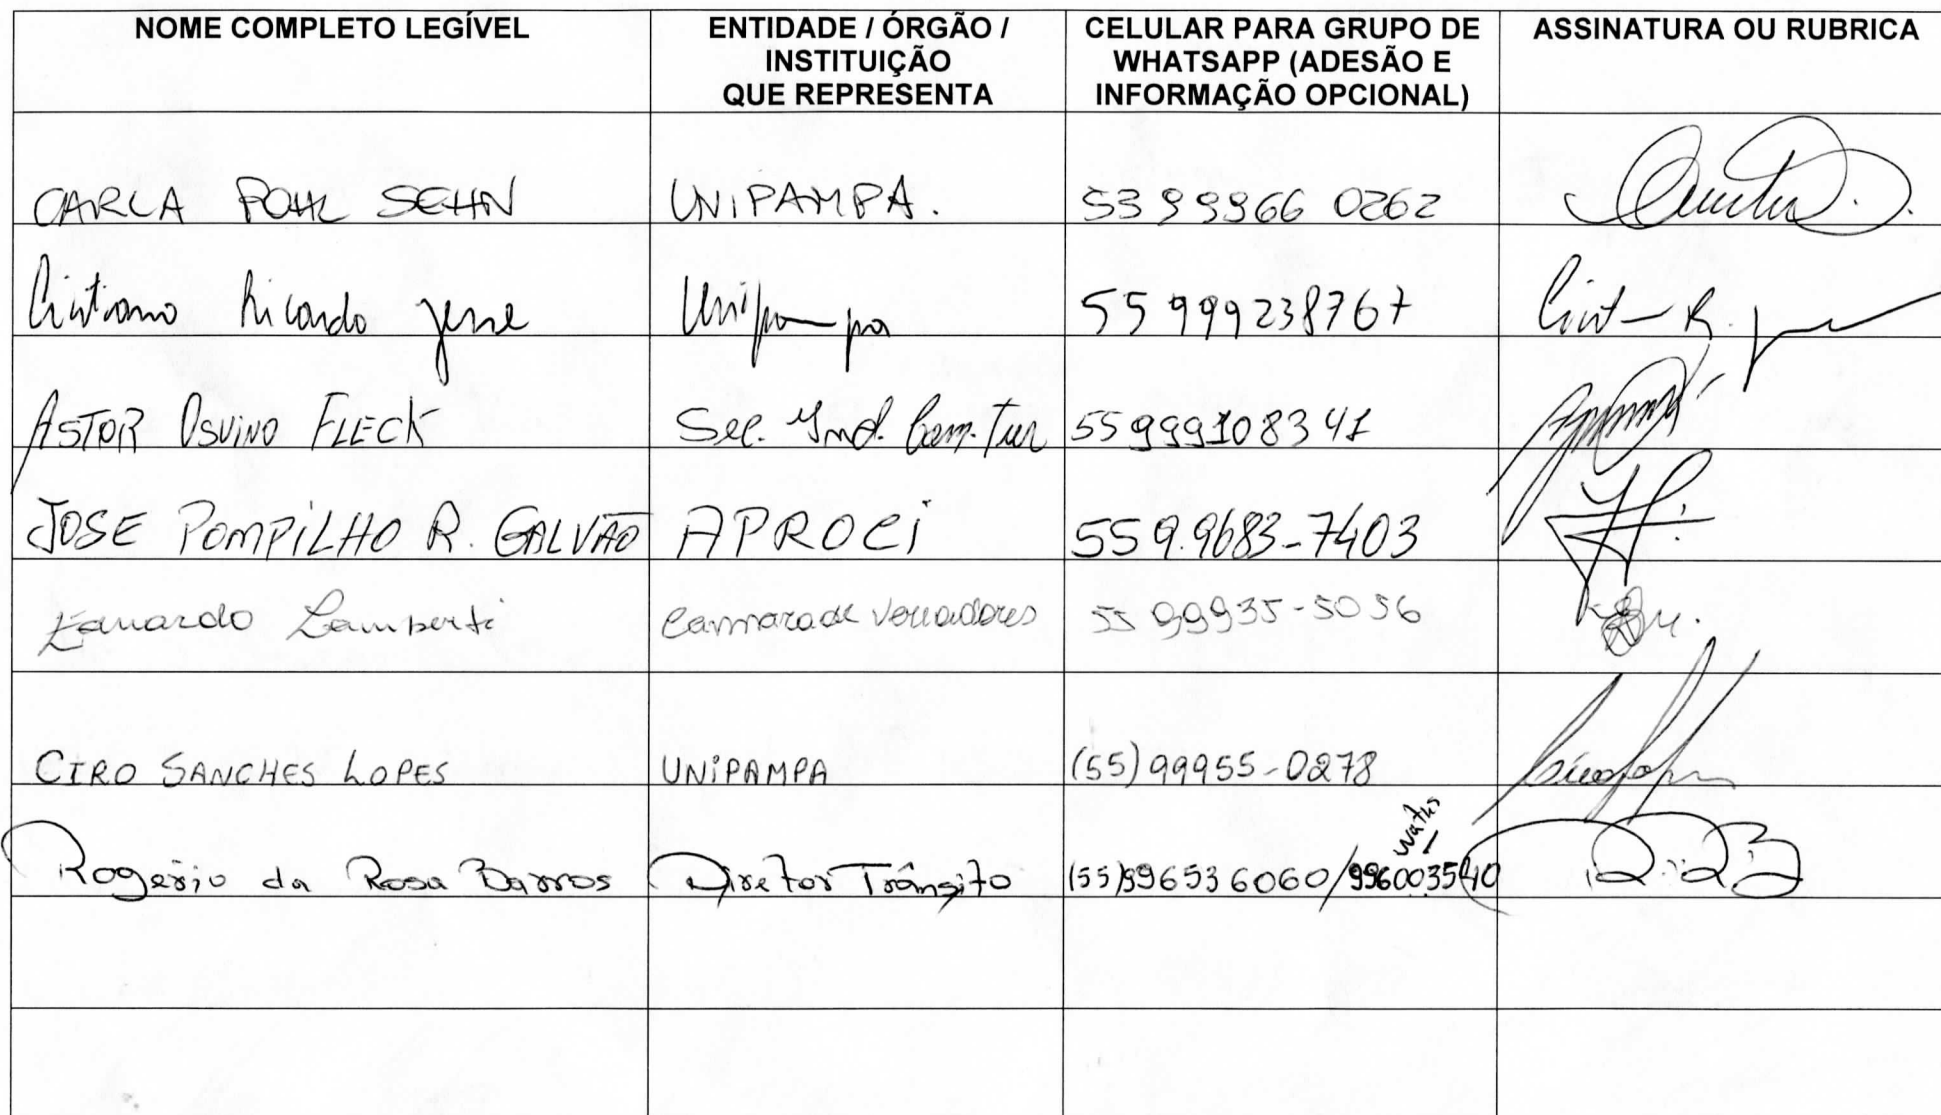 NOME COMPLETO LEGÍVEL
ENTIDADE / ÓRGÃO /
INSTITUIÇÃO
QUE REPRESENTA
CELULAR PARA GRUPO DE
WHATSAPP (ADESÃO E
INFORMAÇÃO OPCIONAL)
ASSINATURA OU RUBRICA
CARLA POHL SEHN UNIPAMPA. 53 99966 0262
Ricardo Unipampa 55 999238767
ASTOR OSVINO FLECK Sec. Ind. Com. Tur 55 999108341
JOSE POMPILHO R. GALVÃO APROCI 55 9.9683-7403
Eduardo Lamberti Cammara de Vereadores 55 99935-5056
CIRO SANCHES LOPES UNIPAMPA (55) 99955-0278
Rogério da Rosa Barros Diretor Trânsito (55) 996536060/996003540